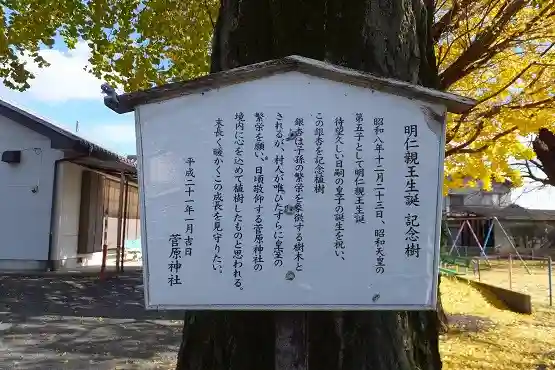 明仁親王生誕 記念樹
昭和八年十二月二十三日、昭和天皇の
第五子として明仁親王生誕
待望久しい日嗣の皇子の誕生を祝い、
この銀杏を記念植樹
銀杏は子孫の繁栄を象徴する樹木と
されるが、村人が唯ひたすらに皇室の
繁栄を願い、日頃敬仰する菅原神社の
境内に心を込めて植樹したものと思われる。
末長く暖かくこの成長を見守りたい。
平成二十一年一月吉日
菅原神社